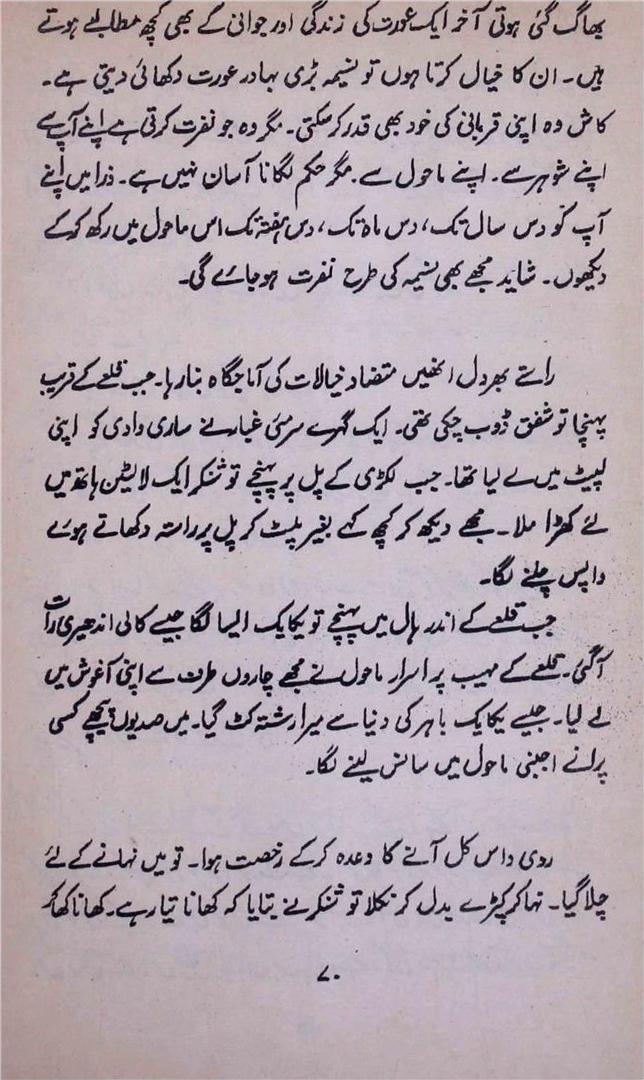 بھاگ گئی ہوتی آخر ایک عورت کی زندگی اور جوانی کے بھی کچھ مطالبے ہوتے
ہیں۔ ان کا خیال کرتا ہوں تو نسیمہ بڑی بہادر عورت دکھائی دیتی ہے۔
کاش وہ اپنی قربانی کی خود بھی قدر کر سکتی۔ مگر وہ جو نفرت کرتی ہے اپنے آپ سے
اپنے شوہر سے۔ اپنے ماحول سے۔ مگر حکم لگانا آسان نہیں ہے۔ ذرا میں اپنے
آپ کو دس سال تک، دس ماہ تک، دس ہفتہ تک اس ماحول میں رکھ کے
دیکھوں۔ شاید مجھے بھی نسیمہ کی طرح نفرت ہو جائے گی۔
راستے بھر دل انھیں متضاد خیالات کی آماجگاہ بنا رہا۔ جب قلعے کے قریب
پہنچا تو شفق ڈوب چکی تھی۔ ایک گہرے سرمئی غبار نے ساری وادی کو اپنی
لپیٹ میں لے لیا تھا۔ جب لکڑی کے پل پر پہنچے تو شنکر ایک لالٹین ہاتھ میں
لئے کھڑا ملا۔ مجھے دیکھ کر کچھ کہے بغیر پلٹ کر پل پر راستہ دکھاتے ہوئے
واپس چلنے لگا۔
جب قلعے کے اندر ہال میں پہنچے تو یکایک ایسا لگا جیسے کالی اندھیری رات
آگئی۔ قلعے کے مہیب پر اسرار ماحول نے مجھے چاروں طرف سے اپنی آغوش میں
لے لیا۔ جیسے یکایک باہر کی دنیا سے میرا رشتہ کٹ گیا۔ میں صدیوں پیچھے کسی
پرانے اجنبی ماحول میں سانس لینے لگا۔
روی داس کل آنے کا وعدہ کرکے رخصت ہوا۔ تو میں نہانے کے لئے
چلا گیا۔ نہا کر کپڑے بدل کر نکلا تو شنکر نے بتایا کہ کھانا تیار ہے۔ کھانا کھا کر
۷۰